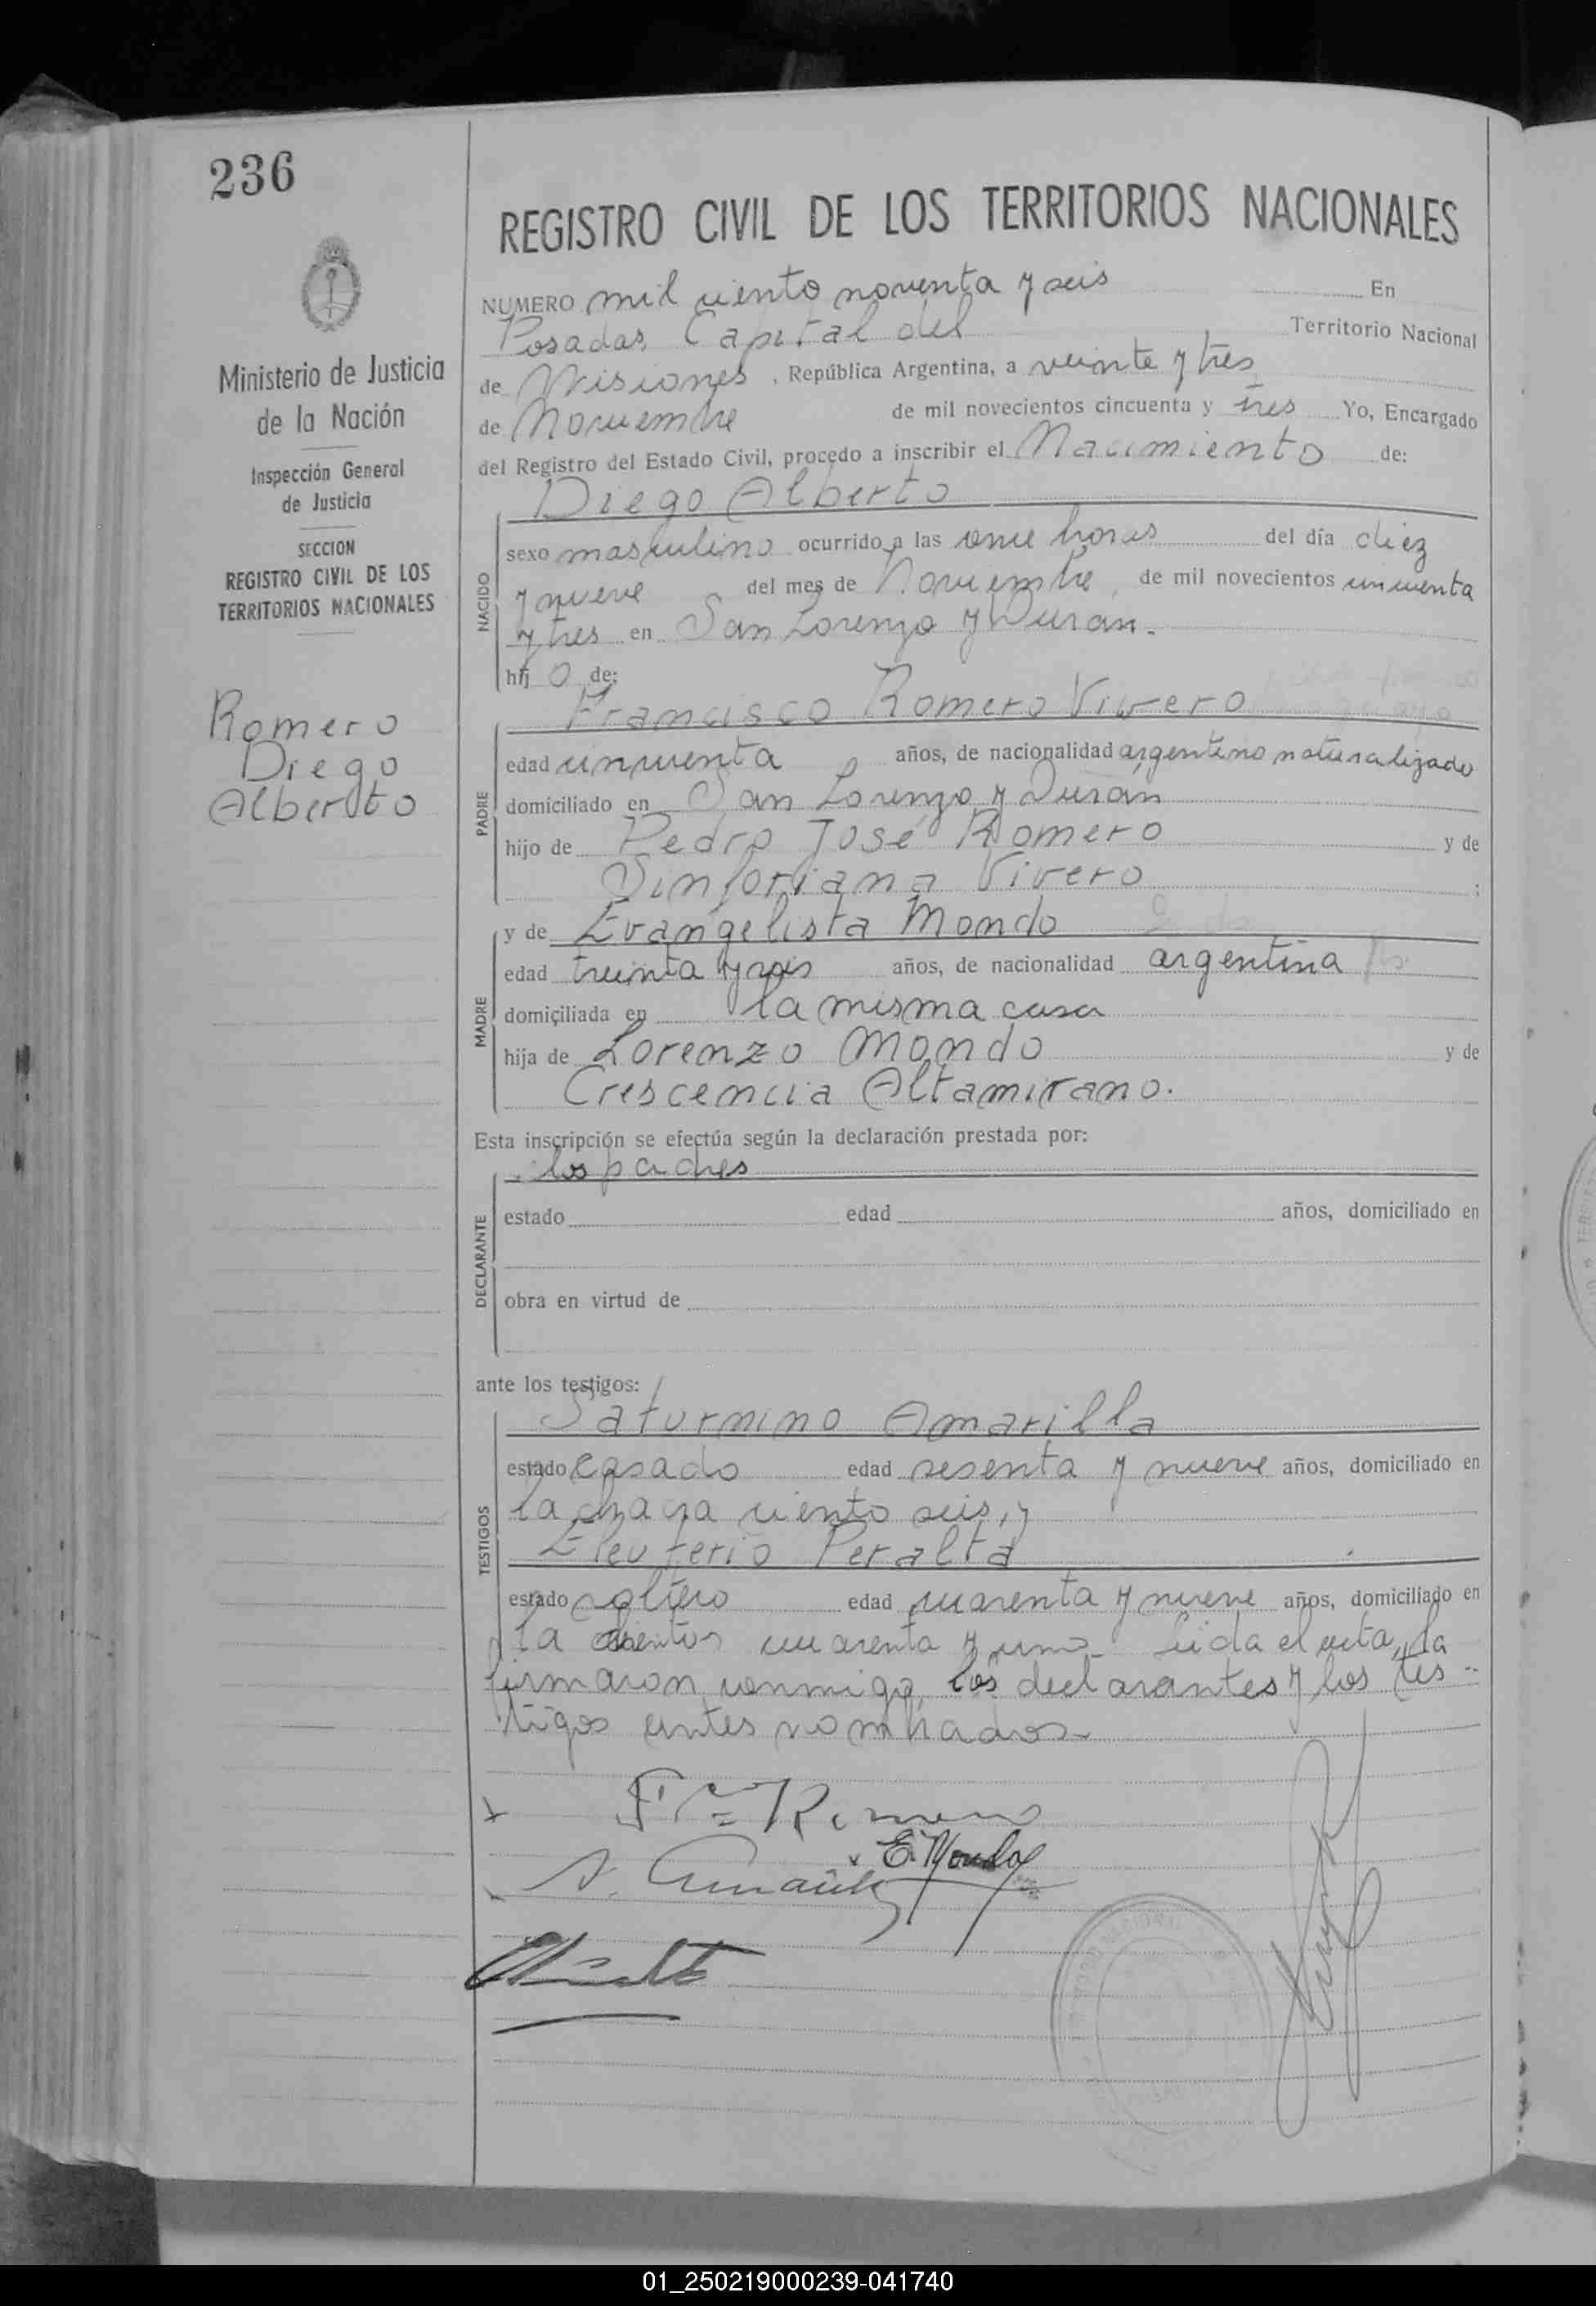 236
Ministerio de Justicia
de la Nación
Inspección General
de Justicia
SECCION
REGISTRO CIVIL DE LOS
TERRITORIOS NACIONALES
Romero
Diego
Alberto
REGISTRO CIVIL DE LOS TERRITORIOS NACIONALES
NUMERO mil ciento noventa y seis En
Posadas, Capital del Territorio Nacional
de Misiones, República Argentina, a veinte y tres
de Noviembre de mil novecientos cincuenta y tres Yo, Encargado
del Registro del Estado Civil, procedo a inscribir el Nacimiento de:
Diego Alberto
NACIDO
sexo masculino ocurrido a las once horas del día diez
y nueve del mes de Noviembre, de mil novecientos cincuenta
y tres en San Lorenzo y Durán.
hij o de:
Francisco Romero Vivero
PADRE
edad cincuenta años, de nacionalidad argentino naturalizado
domiciliado en San Lorenzo y Durán
hijo de Pedro José Romero y de
Sinforiana Vivero ;
MADRE
y de Evangelista Mondo
edad treinta y años, de nacionalidad argentina
domiciliada en la misma casa
hija de Lorenzo Mondo y de
Crescencia Altamirano.
Esta inscripción se efectúa según la declaración prestada por:
los padres
DECLARANTE
estado edad años, domiciliado en
obra en virtud de
ante los testigos:
TESTIGOS
Saturnino Amarilla
estado casado edad sesenta y nueve años, domiciliado en
la chacra ciento seis, y
Eleuterio Peralta
estado soltero edad cuarenta y nueve años, domiciliado en
la cuarenta y uno. Leida el acta, la
firmaron conmigo, los declarantes y los tes-
tigos antes nombrados.
Fco Romero
E. Mondo
S. Amarilla
01_250219000239-041740